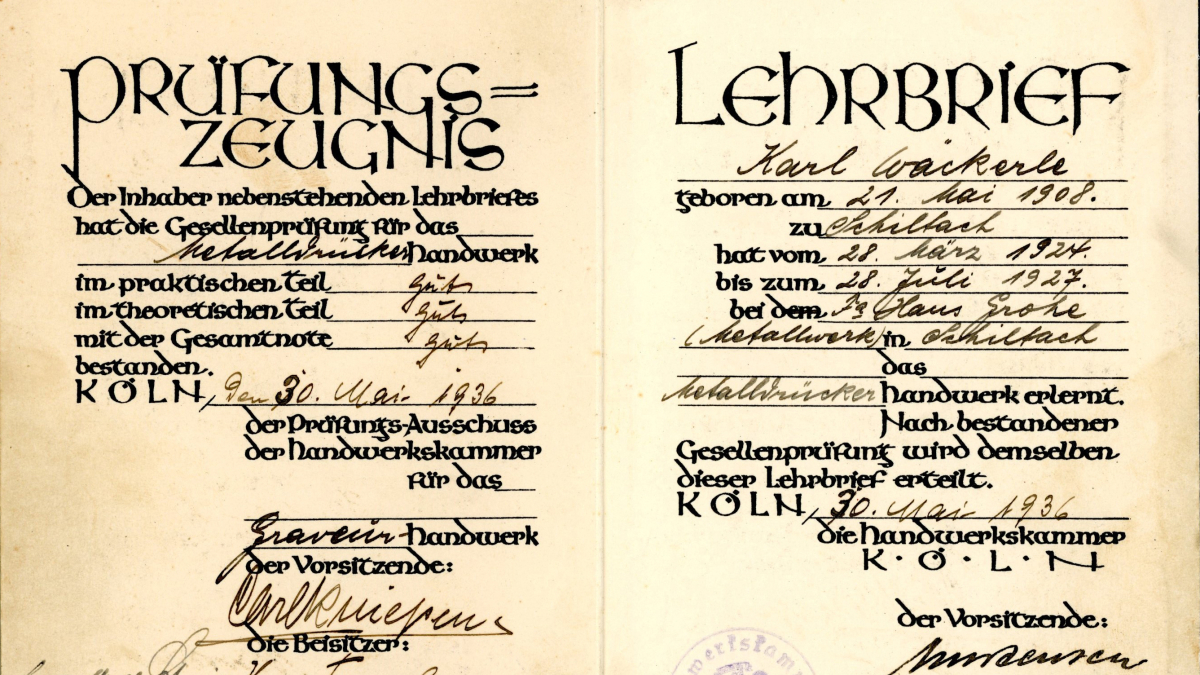 PRÜFUNGS=
ZEUGNIS
Der Inhaber nebenstehenden Lehrbriefes
hat die Gesellenprüfung für das
Metalldrücker Handwerk
im praktischen Teil Gut
im theoretischen Teil Gut
mit der Gesamtnote Gut
bestanden.
KÖLN, den 30. Mai 1936
der Prüfungs-Ausschuss
der Handwerkskammer
für das
Graveur-Handwerk
der Vorsitzende:
die Beisitzer:
LEHRBRIEF
Karl Wäckerle
geboren am 21. Mai 1908.
zu Schiltach
hat vom 28. März 1924.
bis zum 28. Juli 1927.
bei dem Fa Hans Grohe
(Metallwerk) in Schiltach
das
Metalldrücker Handwerk erlernt.
Nach bestandener
Gesellenprüfung wird demselben
dieser Lehrbrief erteilt.
KÖLN, 30. Mai 1936
die Handwerkskammer
K·Ö·L·N
der Vorsitzende: